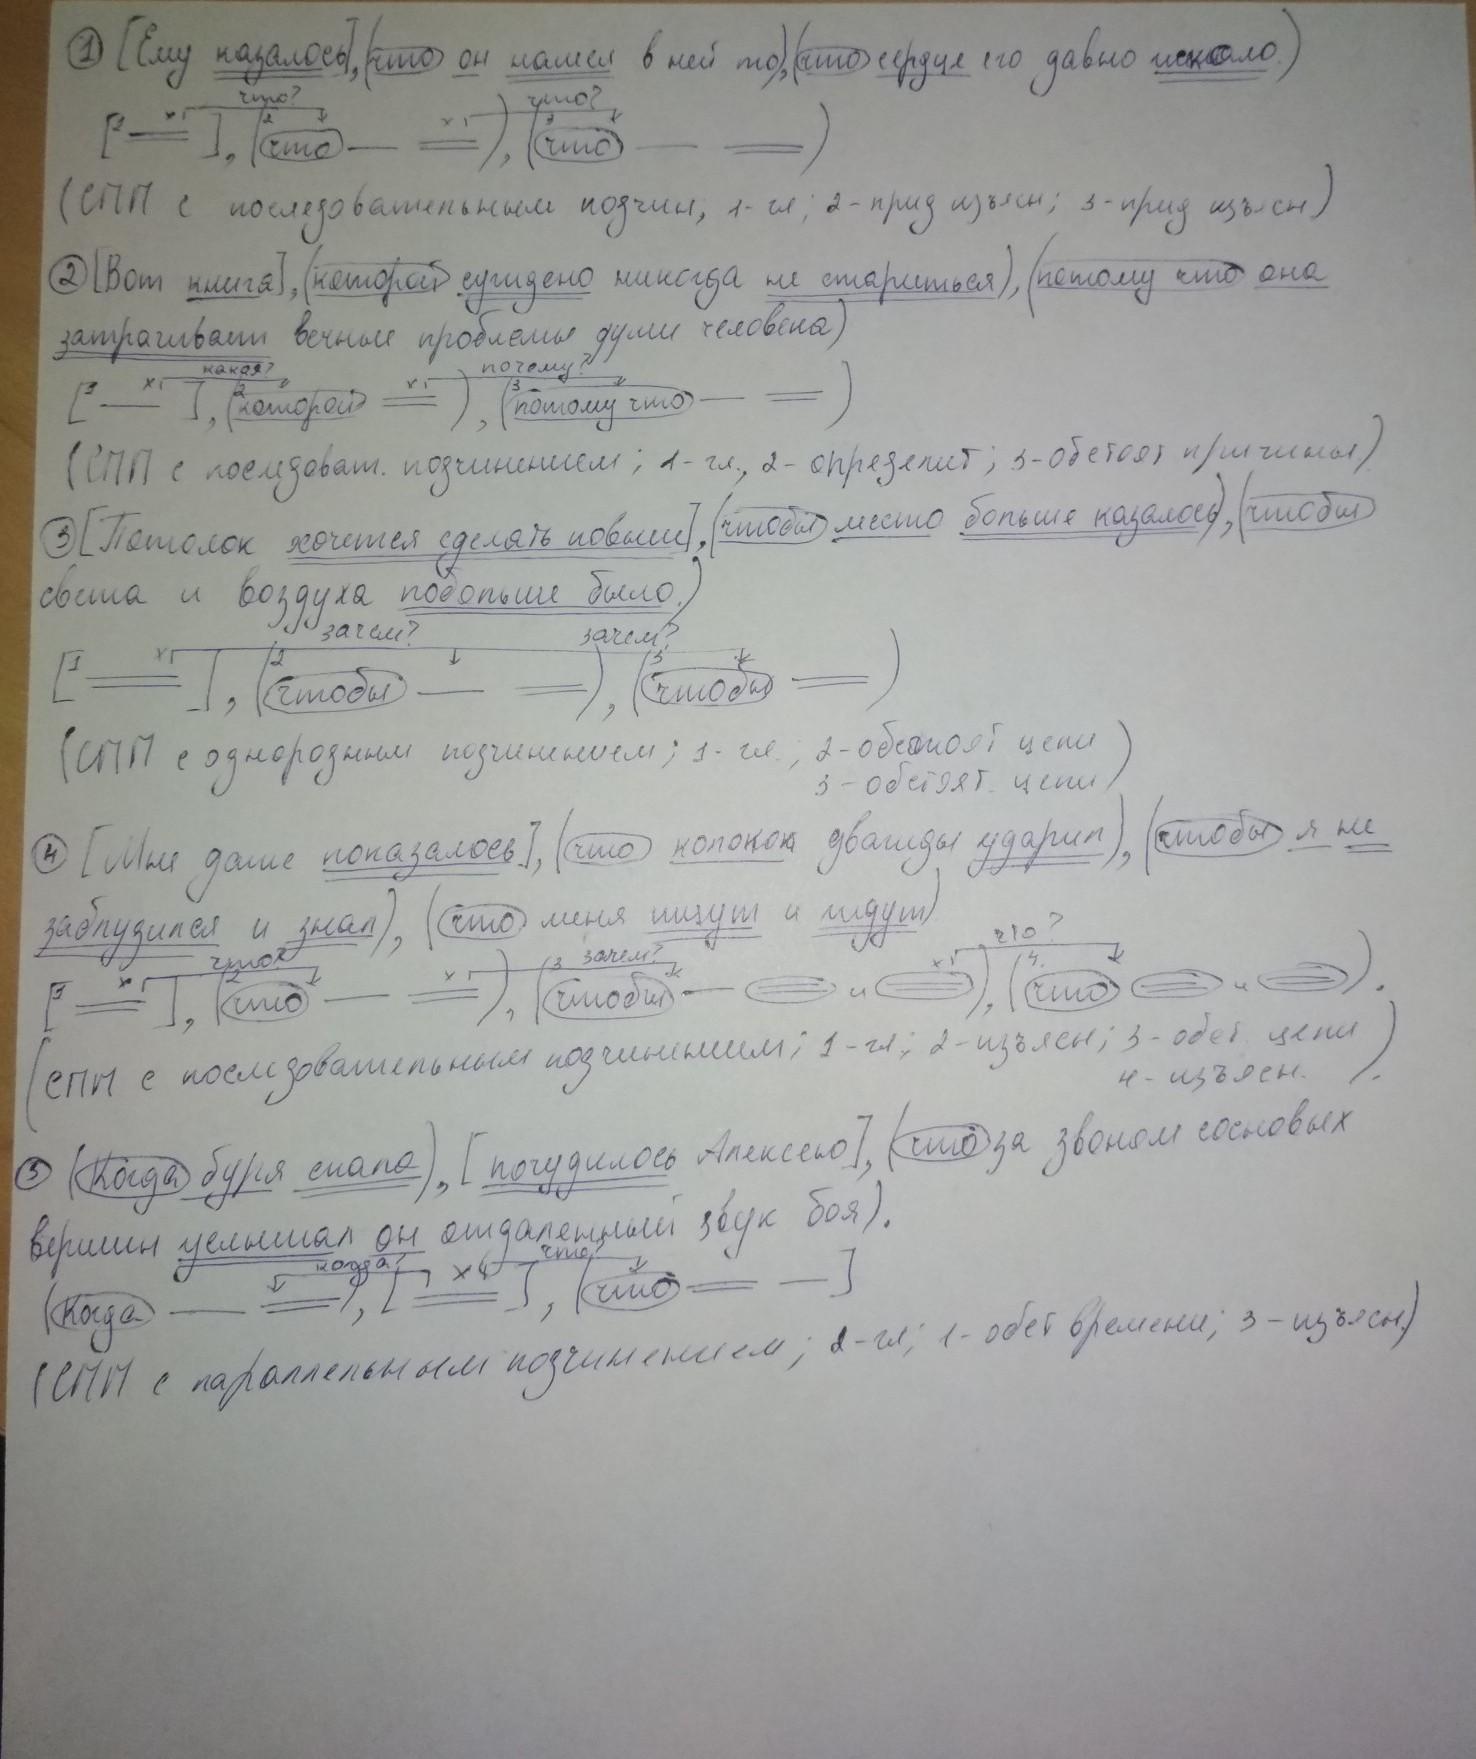 ① [Ему казалось], (что он нашел в ней то), (что сердце его давно искало.)
что? что?
[1 ×], (2 что ×), (3 что)
(СПП с последовательным подчин, 1-гл; 2-прид изъясн; 3-прид изъясн)
② [Вот книга], (которой суждено никогда не стариться), (потому что она
затрагивает вечные проблемы души человека)
какая? почему?
[1 ×], (2 которой ×), (3 потому что)
(СПП с последоват. подчинением; 1-гл., 2-определит; 3-обстоят причины)
③ [Потолок хочется сделать повыше], (чтобы место больше казалось), (чтобы
света и воздуха побольше было.)
зачем? зачем?
[1 ×], (2 чтобы), (3 чтобы)
(СПП с однородным подчинением; 1-гл.; 2-обстоят цели
3-обстоят. цели)
④ [Мне даже показалось], (что колокол дважды ударил), (чтобы я не
заблудился и знал), (что меня ищут и ждут)
что? зачем? что?
[1 ×], (2 что ×), (3 чтобы и ×), (4. что и).
(СПП с последовательным подчинением; 1-гл; 2-изъясн; 3-обст. цели
4-изъясн.).
⑤ (Когда буря спала), [почудилось Алексею], (что за звоном сосновых
вершин услышал он отдаленный звук боя).
когда? что?
(Когда), [×], (что]
(СПП с параллельным подчинением; 2-гл; 1-обст времени; 3-изъясн.)